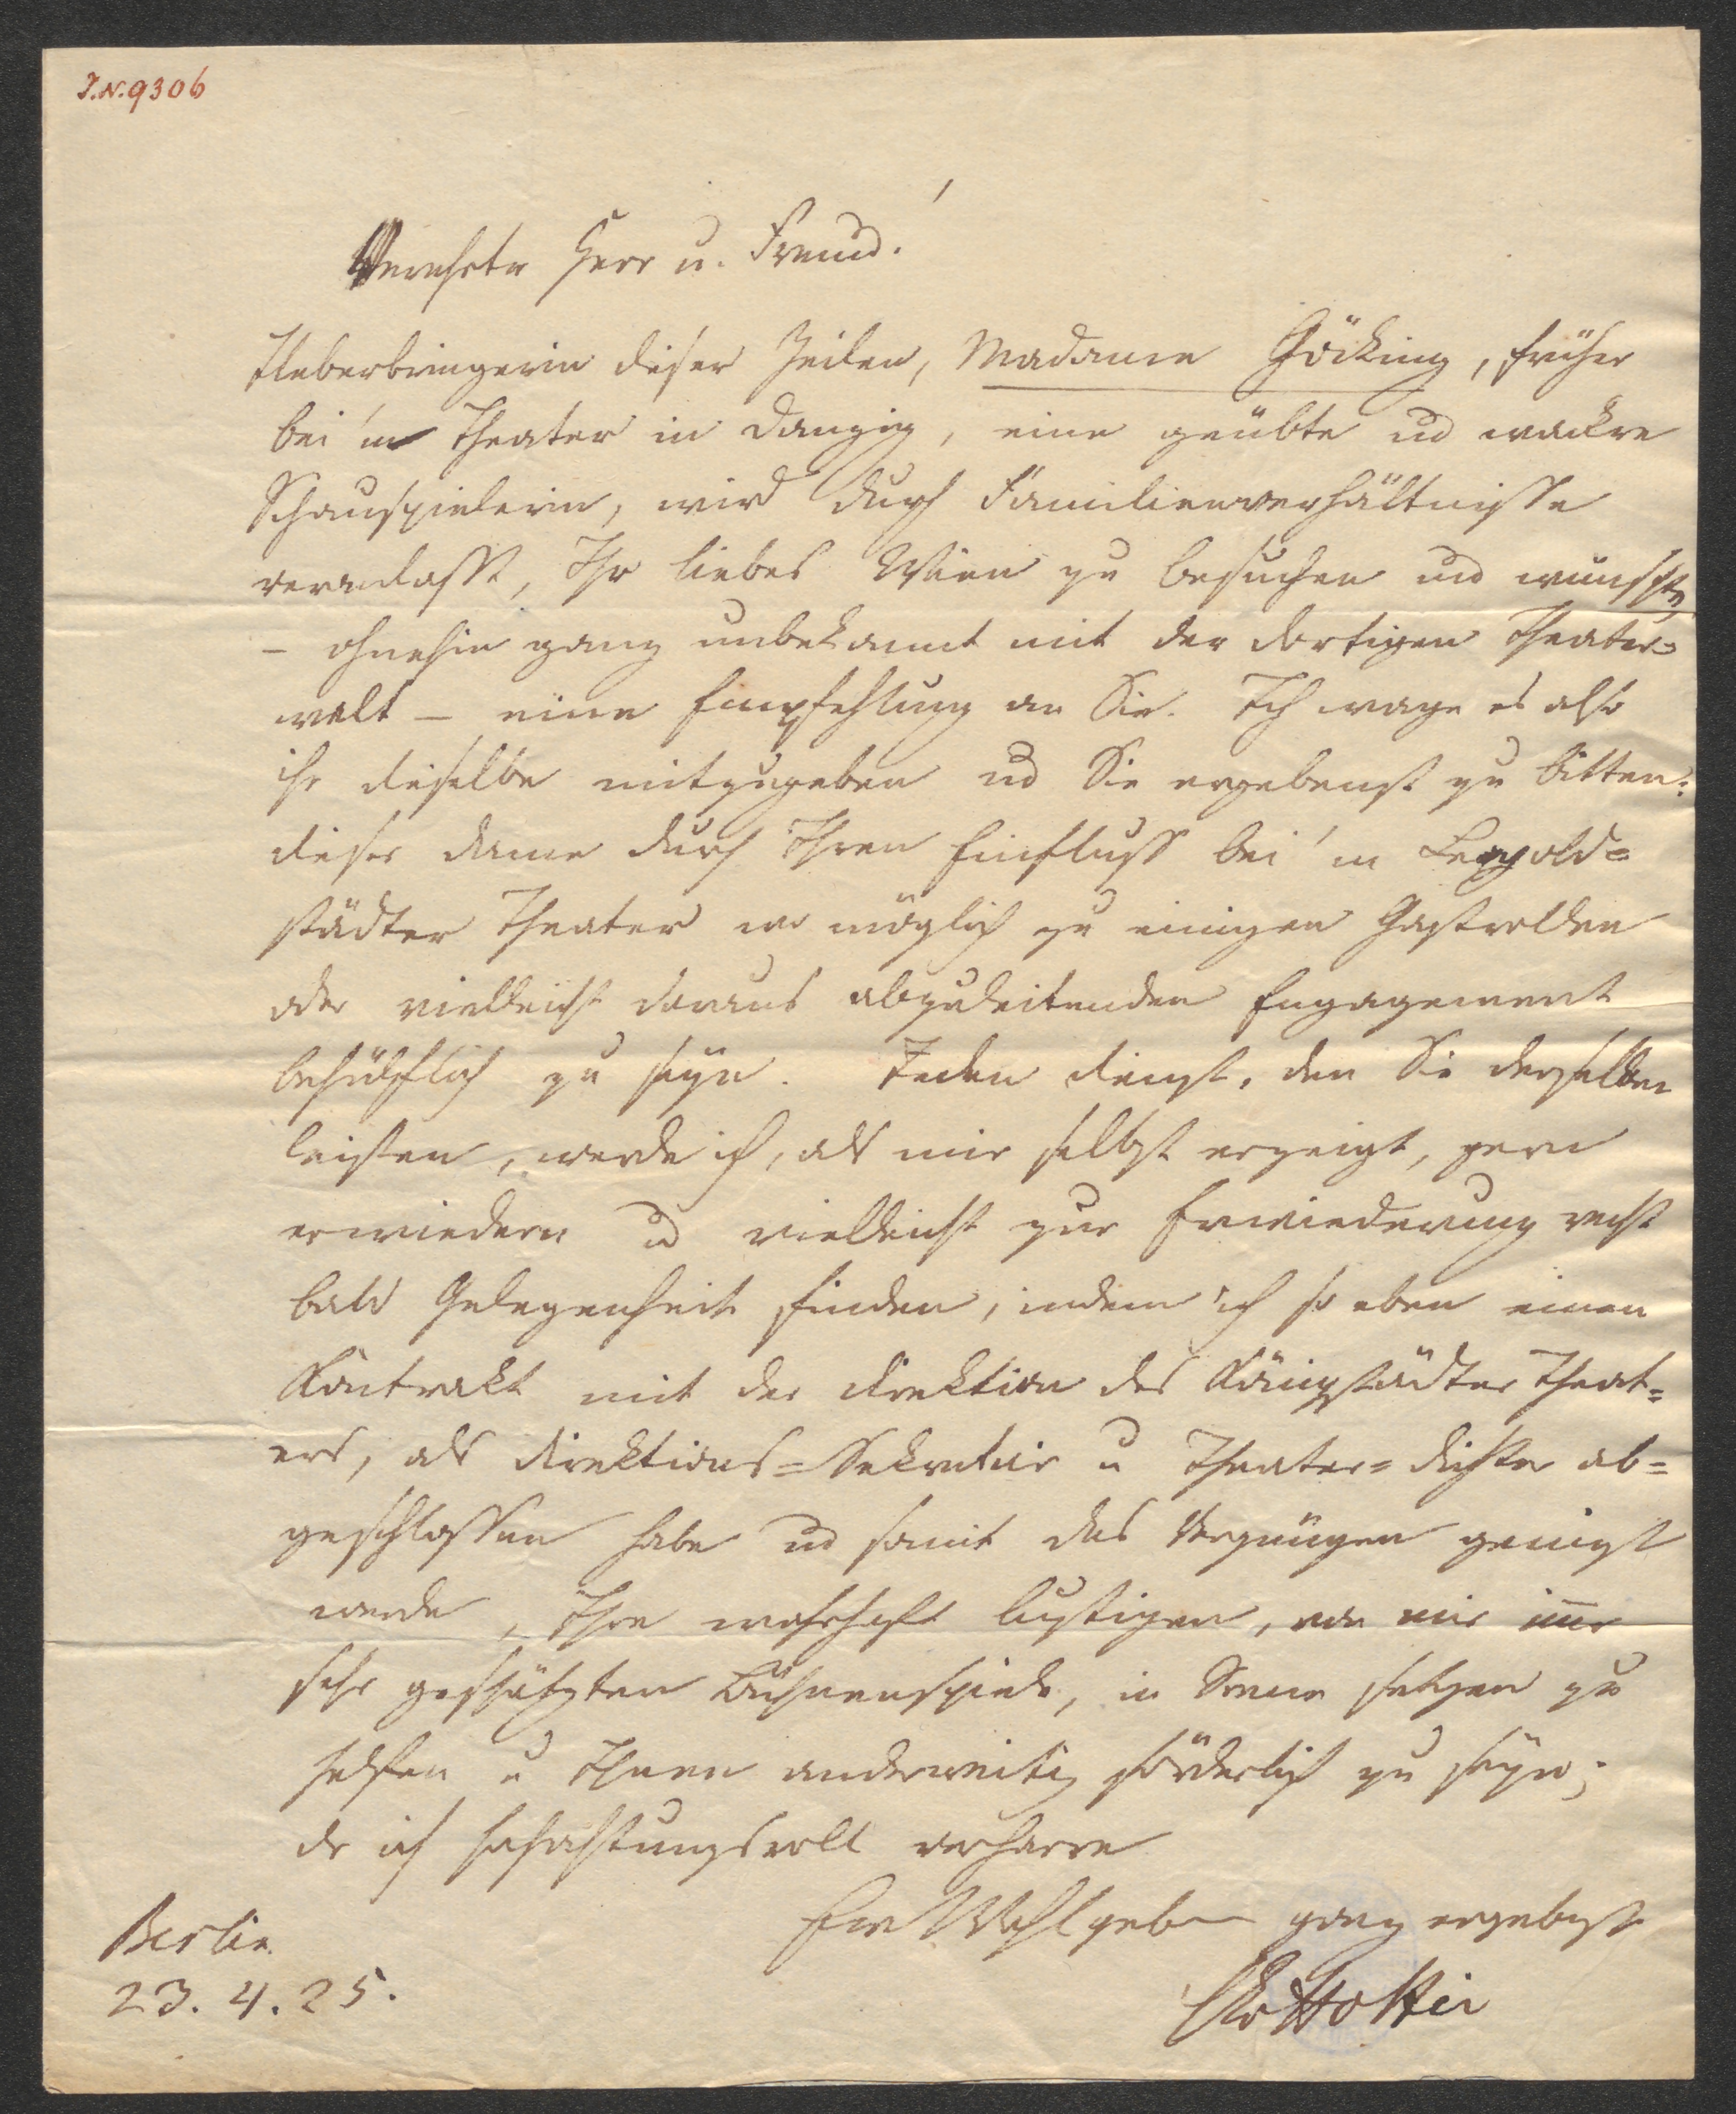 I.N. 9306
Verehrter Herr u. Freund!
Ueberbringerin dieser Zeilen, Madame Göcking, früher
bei'm Theater in Danzig, eine geübte und wackre
Schauspielerin, wird durch Familienverhältnisse
veranlasst, Ihr liebes Wien zu besuchen und wünscht,
– ohnehin ganz unbekannt mit der dortigen Theater=
welt – eine Empfehlung an Sie. Ich wage es also
ihr dieselbe mitzugeben und Sie ergebenst zu bitten:
dieser Dame durch Ihren Einfluss bei'm Leopold=
städter Theater wo möglich zu einigen Gastrollen
oder vielleicht daraus abzuleitenden Engagement
behülflich zu seyn. Jeden Dienst, den Sie derselben
leisten, werde ich, als mir selbst erzeigt, gern
erwiedern und vielleicht zur Erwiederung recht
bald Gelegenheit finden, indem ich so eben einen
Kontrakt mit der Direktion des Königstädter Theat=
ers, als Direktions=Sekretair u Theater=Dichter ab=
geschlossen habe und somit das Vergnügen
werde, Ihre wahrhaft lustigen, von mir immer
sehr geschätzten Bühnenspiele, in Scene setzen zu
helfen u Ihnen anderweitig förderlich zu seyn;
der ich hochachtungsvoll verharre
Ew Wohlgeb ganz ergebenst
CvHoltei
Berlin
23. 4. 25.